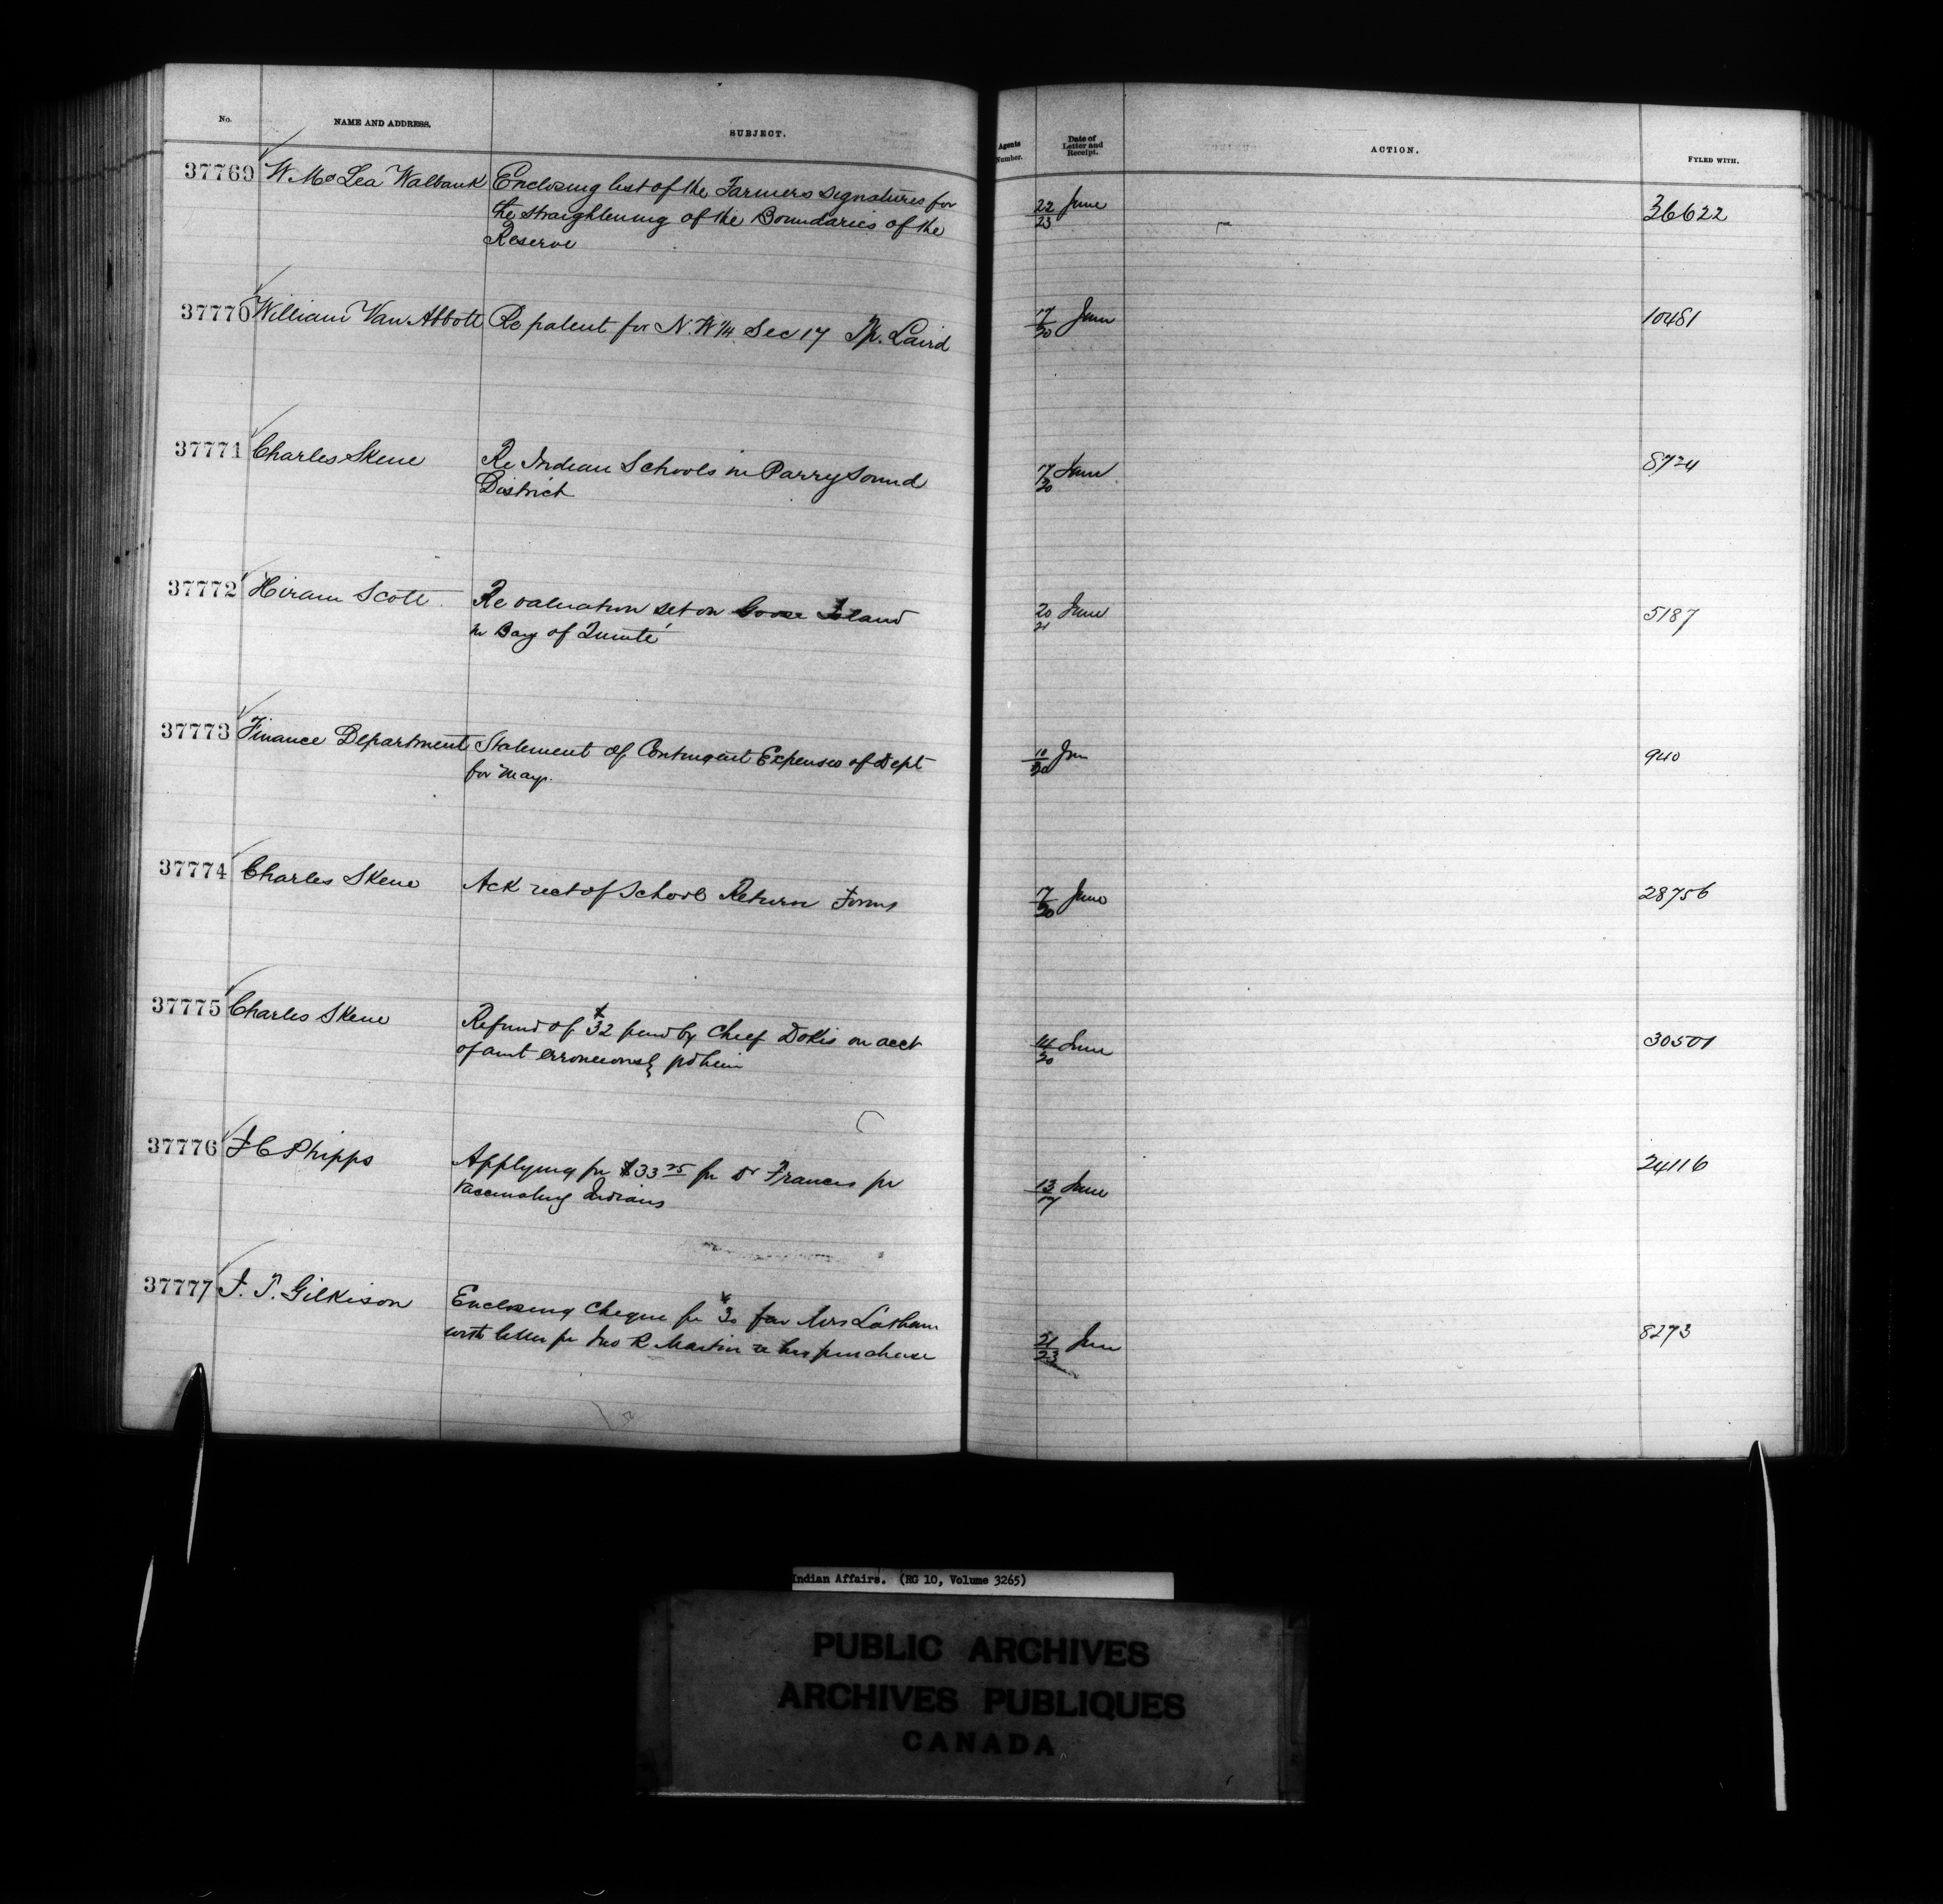 No. NAME AND ADDRESS. SUBJECT. Agents Number. Date of Letter and Receipt. ACTION. FYLED WITH.
37769 W. McLea Walbank Enclosing list of the Farmers signatures for 22/23 June 36622
the straightening of the Boundaries of the
Reserve
37770 William Van Abbott Re patent for N.W 1/4 Sec 17 Tp. Laird 17/20 June 10481
37771 Charles Skene Re Indian Schools in Parry Sound 17/20 June 8724
District
37772 Hiram Scott Re valuation set on Goose Island 20/21 June 5187
in Bay of Quinté
37773 Finance Department Statement of Contingent Expenses of Dept 10/20 Jun 940
for May.
37774 Charles Skene Ack rect of School Return Forms 17/20 June 28756
37775 Charles Skene Refund of $32 paid by Chief Dokis on acct 14/20 June 30501
of amt erroneously pd him
37776 J C Phipps Applying for $33 25 for Dr Francis for 13/17 June 24116
Vaccinating Indians
37777 J. T. Gilkison Enclosing Cheque for $30 for Mrs Latham 21/23 June 8273
with letter fr Jno R Martin re her purchase
Indian Affairs. (RG 10, Volume 3265)
PUBLIC ARCHIVES
ARCHIVES PUBLIQUES
CANADA